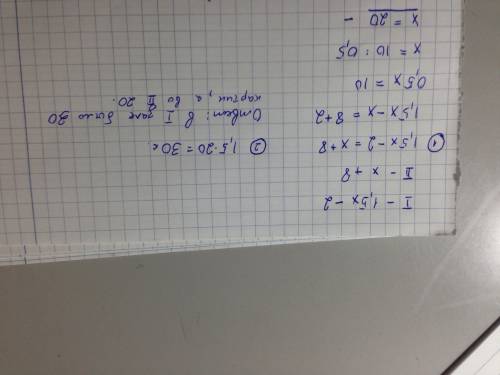 I - 1,5x - 2
II - x + 8
① 1,5x - 2 = x + 8
1,5x - x = 8 + 2
0,5x = 10
x = 10 : 0,5
x = 20 -
② 1,5 · 20 = 30
Ответ: в I зале было 30
картин, а во II 20.